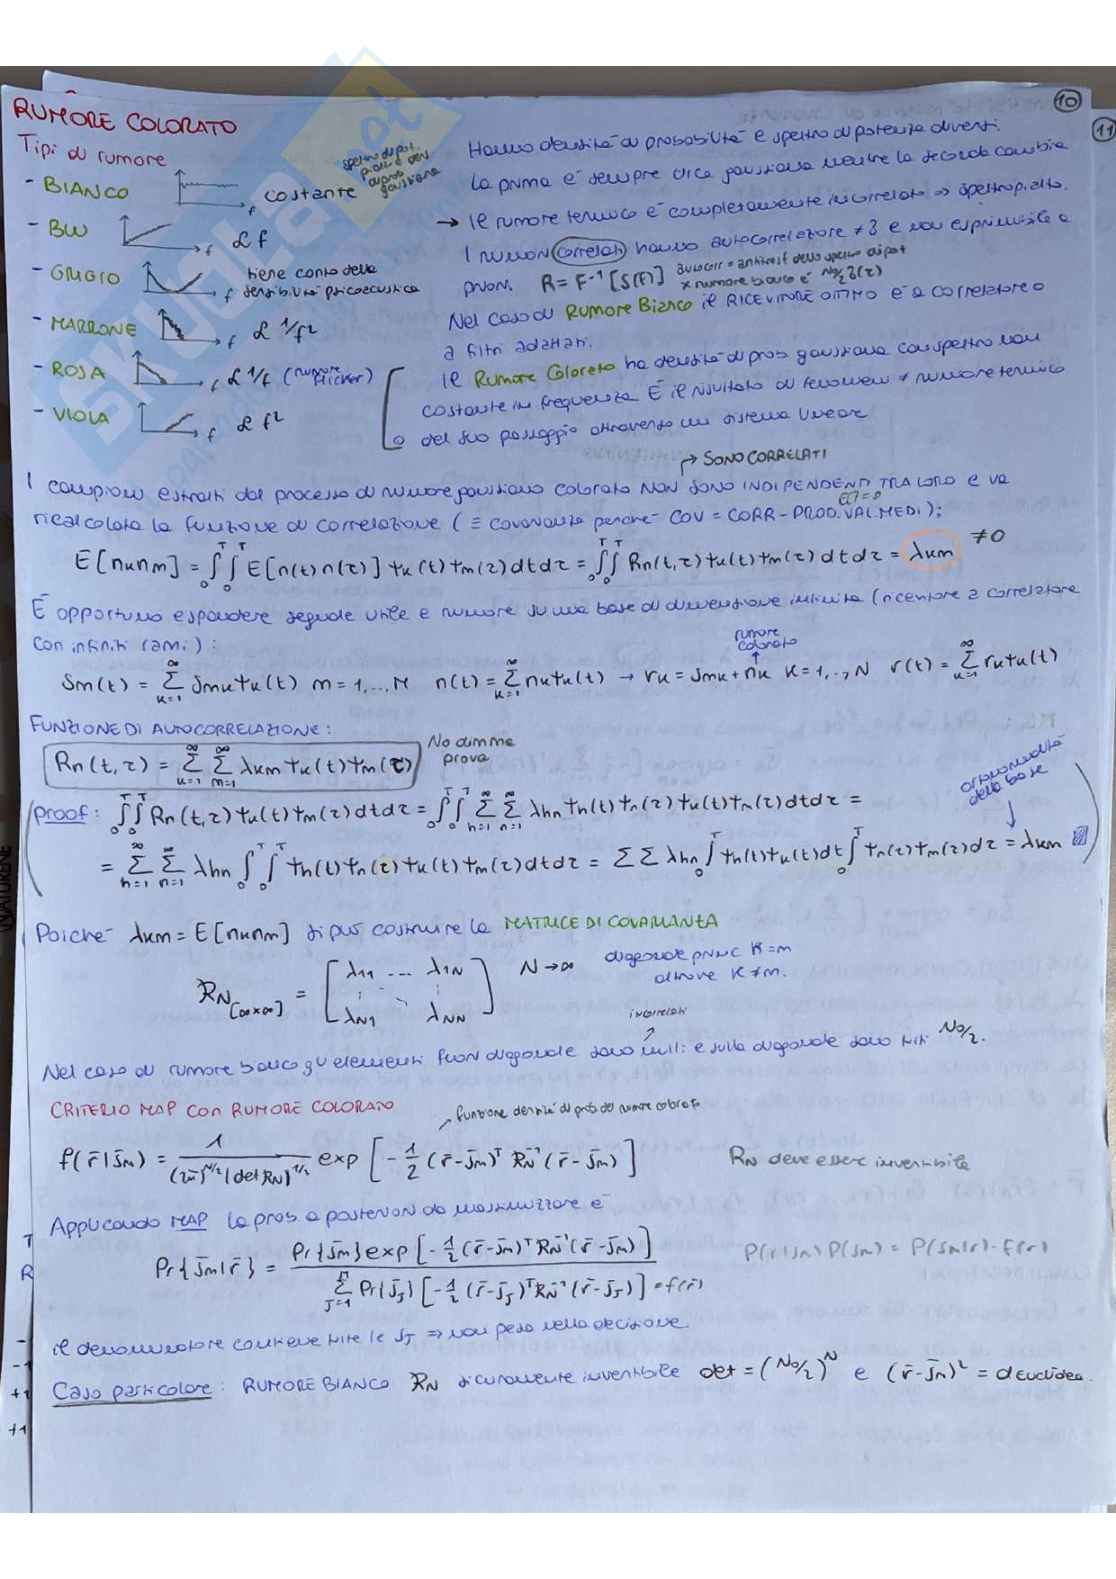 10
11
RUMORE COLORATO
Tipi di rumore
- BIANCO f costante
spettro di pot. piatto e den di prob gaussiana
- BLU f α f
- GRIGIO f tiene conto della sensibilità psicoacustica
- MARRONE f α 1/f²
- ROSA f α 1/f (rumore flicker)
- VIOLA f α f²
Hanno densità di probabilità e spettro di potenza diversi.
La prima è sempre circa gaussiana mentre la seconda cambia
→ Il rumore termico è completamente incorrelato ⇒ spettro piatto.
I rumori correlati hanno autocorrelazione ≠ δ e non esprimibile a
priori. R = F⁻¹ [S(f)] autocorr = antitrasf dello spettro di pot
x rumore bianco è N₀/2 δ(τ)
Nel caso di Rumore Bianco il RICEVITORE OTTIMO è a correlatore o
a filtri adattati.
Il Rumore Colorato ha densità di prob gaussiana con spettro non
costante in frequenza. È il risultato di fenomeni ≠ rumore termico
o del suo passaggio attraverso un sistema lineare
→ SONO CORRELATI
I campioni estratti dal processo di rumore gaussiano colorato NON SONO INDIPENDENTI TRA LORO e va
ricalcolata la funzione di correlazione (≡ covarianza perché COV = CORR - PROD. VAL. MEDI);
E[·]=0
E[nₖnₘ] = ∫₀ᵀ∫₀ᵀ E[n(t)n(τ)] ψₖ(t) ψₘ(τ) dt dτ = ∫₀ᵀ∫₀ᵀ Rₙ(t,τ) ψₖ(t) ψₘ(τ) dt dτ = λₖₘ ≠0
È opportuno espandere segnale utile e rumore su una base di dimensione infinita (ricevitore a correlatore
con infiniti rami):
rumore colorato
Sm(t) = Σₖ₌₁^∞ Smk ψₖ(t) m = 1,...,M n(t) = Σₖ₌₁^∞ nₖψₖ(t) → rₖ = Smk + nₖ k = 1,..,N r(t) = Σₖ₌₁^∞ rₖψₖ(t)
FUNZIONE DI AUTOCORRELAZIONE:
Rₙ(t,τ) = Σₖ₌₁^∞ Σₘ₌₁^∞ λₖₘ ψₖ(t) ψₘ(τ)
No dimme prova
ortonormalità della base
proof: ∫₀ᵀ∫₀ᵀ Rₙ(t,τ) ψₖ(t) ψₘ(τ) dt dτ = ∫₀ᵀ∫₀ᵀ Σₕ₌₁^∞ Σₙ₌₁^∞ λₕₙ ψₕ(t) ψₙ(τ) ψₖ(t) ψₙ(τ) dt dτ =
= Σₕ₌₁^∞ Σₙ₌₁^∞ λₕₙ ∫₀ᵀ∫₀ᵀ ψₕ(t) ψₙ(τ) ψₖ(t) ψₘ(τ) dt dτ = Σ Σ λₕₙ ∫₀ᵀ ψₕ(t) ψₖ(t) dt ∫₀ᵀ ψₙ(τ) ψₘ(τ) dτ = λₖₘ
Poiché λₖₘ = E[nₖnₘ] si può costruire la MATRICE DI COVARIANZA
R_N [∞×∞] = [λ₁₁ ... λ₁N ; λN₁ λNN] N→∞
diagonale princ k=m
altrove k≠m.
incorrelati
Nel caso di rumore bianco gli elementi fuori diagonale sono nulli e sulla diagonale sono tutti N₀/2.
CRITERIO MAP con RUMORE COLORATO
→ funzione densità di prob del rumore colorato
f(r̄|s̄m) = 1/((2π)^(N/2) (det R_N)^(1/2)) exp [-1/2 (r̄-s̄m)ᵀ R_N⁻¹ (r̄-s̄m)]
R_N deve essere invertibile
Applicando MAP la prob a posteriori da massimizzare è
Pr{s̄m|r̄} = Pr{s̄m} exp[-1/2 (r̄-s̄m)ᵀ R_N⁻¹ (r̄-s̄m)] / Σⱼ₌₁^M Pr{s̄j} [-1/2 (r̄-s̄j)ᵀ R_N⁻¹ (r̄-s̄j)] = f(r̄)
P(r|sm) P(sm) = P(sm|r)·f(r)
il denominatore contiene tutte le sj ⇒ non pesa nella decisione.
Caso particolare: RUMORE BIANCO R_N sicuramente invertibile det = (N₀/2)^N e (r̄-s̄m)² = d Euclidea.